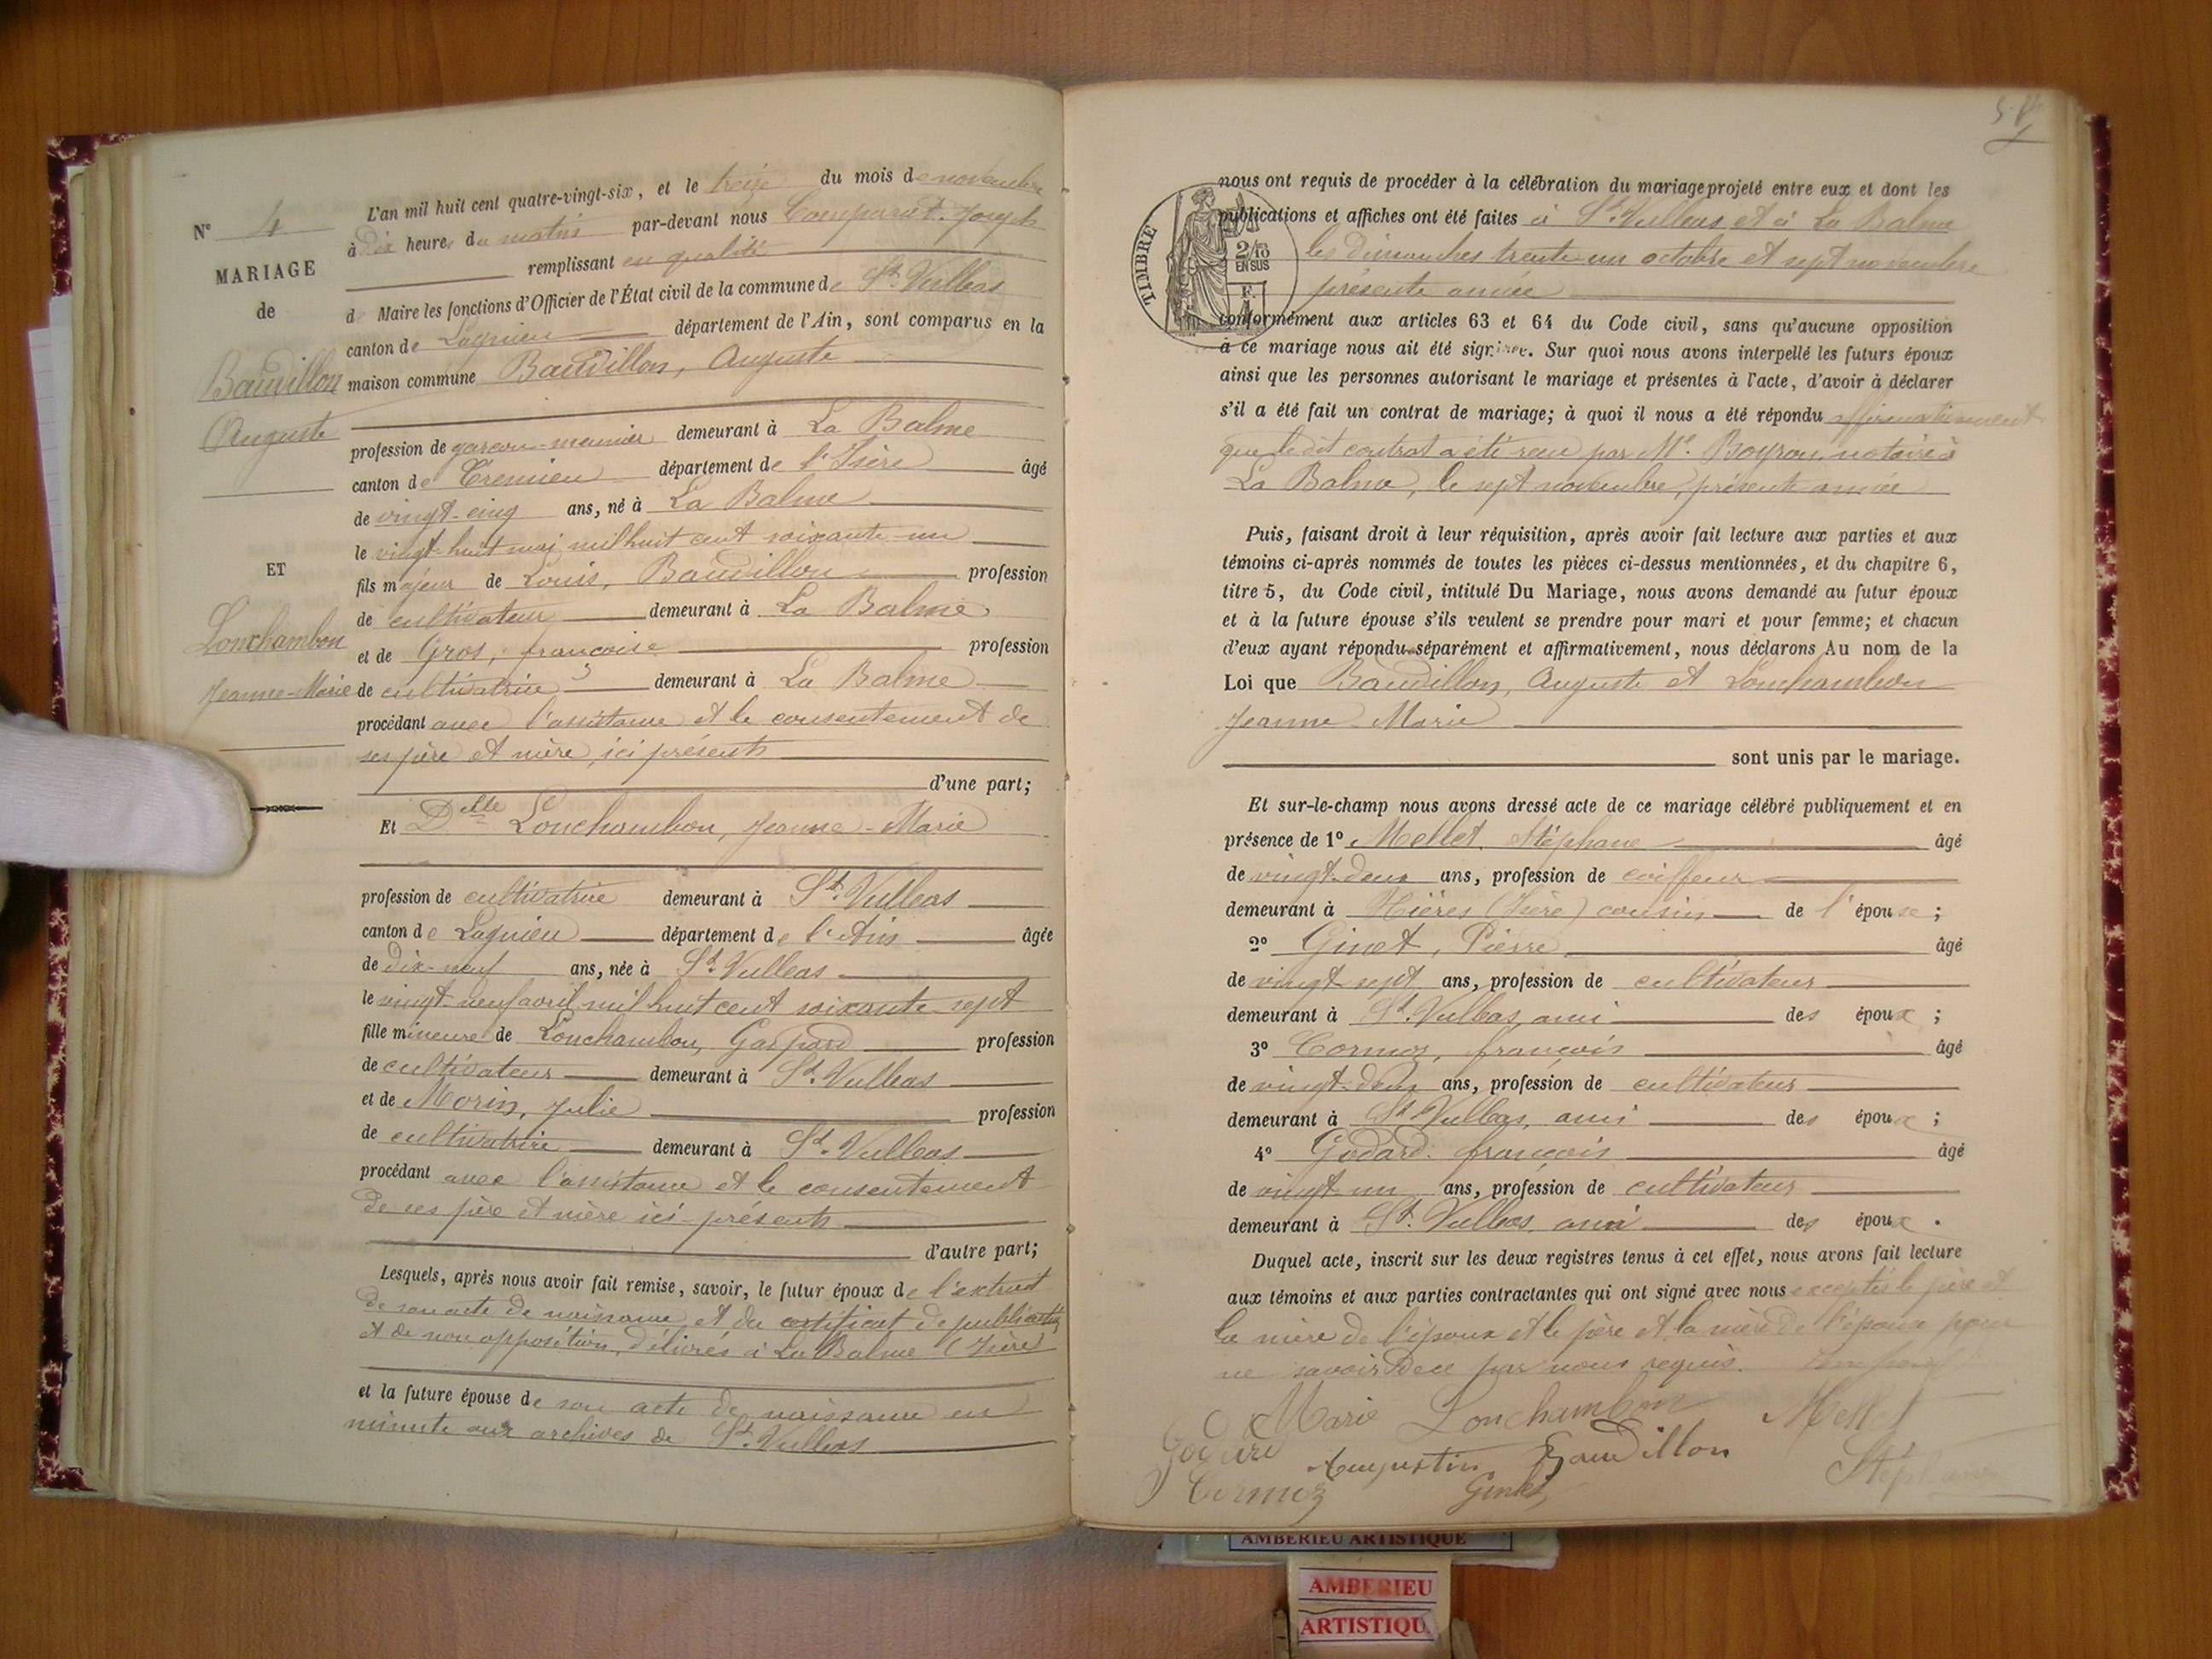 Nº 4
MARIAGE
de
Baudillon
Auguste
ET
Lonchambon
Jeanne-Marie
L'an mil huit cent quatre-vingt-six, et le treize du mois de novembre
à dix heures du matin par-devant nous Comparat Joseph
remplissant en qualité
de Maire les fonctions d'Officier de l'État civil de la commune de St Vulbas
canton de Lagnieu département de l'Ain, sont comparus en la
maison commune Baudillon, Auguste
profession de garçon-meunier demeurant à La Balme
canton de Crémieu département de l'Isère âgé
de vingt-cinq ans, né à La Balme
le vingt-huit mai mil huit cent soixante-un
fils majeur de Louis, Baudillon profession
de cultivateur demeurant à La Balme
et de Gros, françoise profession
de cultivatrice demeurant à La Balme
procédant avec l'assistance et le consentement de
ses père et mère, ici présents
d'une part;
Et Delle Lonchambon, Jeanne-Marie
profession de cultivatrice demeurant à St Vulbas
canton de Lagnieu département de l'Ain âgée
de dix-neuf ans, née à St Vulbas
le vingt-neuf avril mil huit cent soixante-sept
fille mineure de Lonchambon, Gaspard profession
de cultivateur demeurant à St Vulbas
et de Morin, Julie profession
de cultivatrice demeurant à St Vulbas
procédant avec l'assistance et le consentement
de ses père et mère ici présents
d'autre part;
Lesquels, après nous avoir fait remise, savoir, le futur époux de l'extrait
de son acte de naissance et du certificat de publication
et de non opposition, délivrés à La Balme (Isère)
et la future épouse de son acte de naissance en
minute aux archives de St Vulbas
TIMBRE
2/10
EN SUS
F.
nous ont requis de procéder à la célébration du mariage projeté entre eux et dont les
publications et affiches ont été faites à St Vulbas et à La Balme
les dimanches trente-un octobre et sept novembre
présente année
conformément aux articles 63 et 64 du Code civil, sans qu'aucune opposition
à ce mariage nous ait été signifiée. Sur quoi nous avons interpellé les futurs époux
ainsi que les personnes autorisant le mariage et présentes à l'acte, d'avoir à déclarer
s'il a été fait un contrat de mariage; à quoi il nous a été répondu affirmativement
que le dit contrat a été reçu par Me Boyron, notaire à
La Balme, le sept novembre, présente année
Puis, faisant droit à leur réquisition, après avoir fait lecture aux parties et aux
témoins ci-après nommés de toutes les pièces ci-dessus mentionnées, et du chapitre 6,
titre 5, du Code civil, intitulé Du Mariage, nous avons demandé au futur époux
et à la future épouse s'ils veulent se prendre pour mari et pour femme; et chacun
d'eux ayant répondu séparément et affirmativement, nous déclarons Au nom de la
Loi que Baudillon, Auguste et Lonchambon
Jeanne-Marie
sont unis par le mariage.
Et sur-le-champ nous avons dressé acte de ce mariage célébré publiquement et en
présence de 1º Mellet, Stéphane âgé
de vingt-deux ans, profession de coiffeur
demeurant à Hières (Isère) cousin de l'épouse;
2º Ginet, Pierre âgé
de vingt-sept ans, profession de cultivateur
demeurant à St Vulbas, ami des époux;
3º Cormoz, françois âgé
de vingt-deux ans, profession de cultivateur
demeurant à St Vulbas, ami des époux;
4º Godard, françois âgé
de vingt-un ans, profession de cultivateur
demeurant à St Vulbas, ami des époux.
Duquel acte, inscrit sur les deux registres tenus à cet effet, nous avons fait lecture
aux témoins et aux parties contractantes qui ont signé avec nous exceptés le père et
la mère de l'époux et le père et la mère de l'épouse pour
ne savoir de ce par nous requis.
Marie Lonchambon Mellet
Godard Augustin Baudillon Stéphane
Cormoz Ginet
AMBERIEU ARTISTIQUE
AMBERIEU
ARTISTIQU